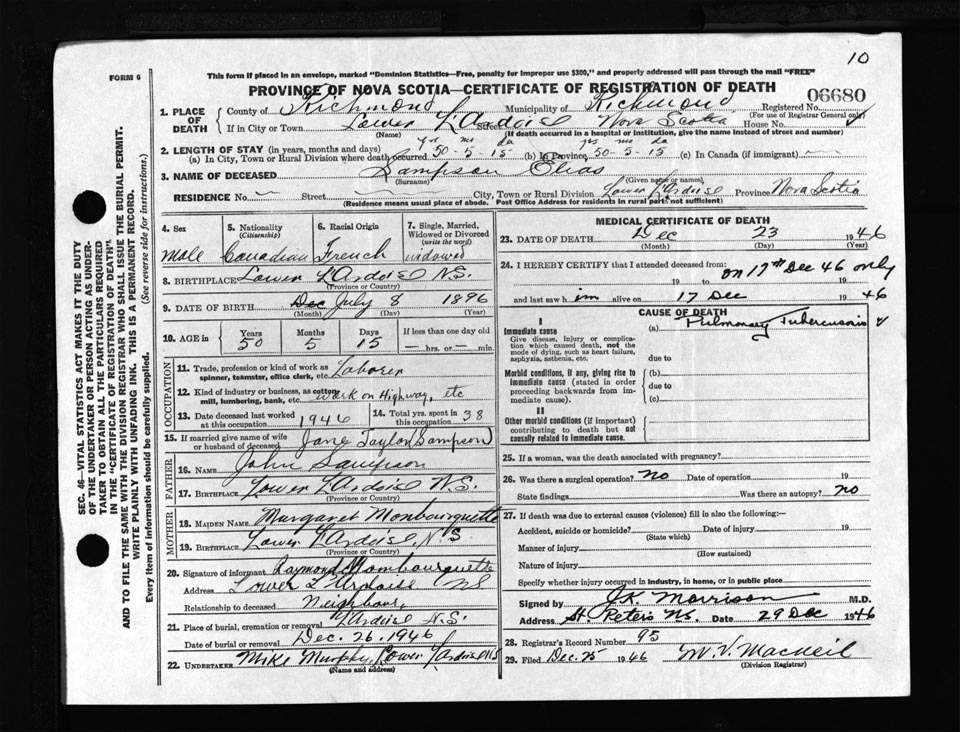 10
FORM 6
This form if placed in an envelope, marked "Dominion Statistics—Free, penalty for improper use $300," and properly addressed will pass through the mail "FREE"
PROVINCE OF NOVA SCOTIA—CERTIFICATE OF REGISTRATION OF DEATH
06680
1. PLACE OF DEATH
County of Richmond Municipality of Richmond Registered No.
(For use of Registrar General only)
If in City or Town Lower L'Ardoise Street Nova Scotia House No.
(Name) (If death occurred in a hospital or institution, give the name instead of street and number)
2. LENGTH OF STAY (in years, months and days) yrs ms da yrs ms da
(a) In City, Town or Rural Division where death occurred 50-5-15 (b) In Province 50-5-15 (c) In Canada (if immigrant)
3. NAME OF DECEASED Sampson Elias
(Surname) (Given name or names)
RESIDENCE No. — Street — City, Town or Rural Division Lower L'Ardoise Province Nova Scotia
(Residence means usual place of abode. Post Office Address for residents in rural parts not sufficient)
4. Sex
male
5. Nationality
(Citizenship)
Canadian
6. Racial Origin
French
7. Single, Married, Widowed or Divorced
(write the word)
widowed
8. BIRTHPLACE Lower L'Ardoise N.S.
(Province or Country)
9. DATE OF BIRTH Dec July 8 1896
(Month) (Day) (Year)
10. AGE in
Years Months Days If less than one day old
50 5 15 — hrs. or — min.
OCCUPATION
11. Trade, profession or kind of work as Laborer
spinner, teamster, office clerk, etc.
12. Kind of industry or business, as cotton work on Highway, etc
mill, lumbering, bank, etc.
13. Date deceased last worked at this occupation 1946
14. Total yrs. spent in 38
15. If married give name of wife or husband of deceased Jane Taylor (Sampson)
FATHER
16. Name John Sampson
17. Birthplace Lower L'Ardoise N.S.
(Province or Country)
MOTHER
18. Maiden Name Margaret Monbourquette
19. Birthplace Lower L'Ardoise, N.S.
(Province or Country)
20. Signature of informant Raymond Mombourquette
Address Lower L'Ardoise NS
Relationship to deceased Neighbour
21. Place of burial, cremation or removal L'Ardoise N.S.
Date of burial or removal Dec. 26, 1946
22. UNDERTAKER Mike Murphy, Lower L'Ardoise NS
(Name and address)
MEDICAL CERTIFICATE OF DEATH
23. DATE OF DEATH Dec 23 1946
(Month) (Day) (Year)
24. I HEREBY CERTIFY that I attended deceased from:
on 17th Dec 46 only
19 to 19
and last saw him alive on 17 Dec 1946
CAUSE OF DEATH
I
Immediate cause (a) Pulmonary Tuberculosis
Give disease, injury or complication which caused death, not the mode of dying, such as heart failure, asphyxia, asthenia, etc.
due to
Morbid conditions, if any, giving rise to immediate cause (stated in order proceeding backwards from immediate cause).
(b)
due to
(c)
II
Other morbid conditions (if important) contributing to death but not causally related to immediate cause.
25. If a woman, was the death associated with pregnancy?
26. Was there a surgical operation? No Date of operation 19
State findings Was there an autopsy? no
27. If death was due to external causes (violence) fill in also the following—
Accident, suicide or homicide? Date of injury 19
(State which)
Manner of injury
(How sustained)
Nature of injury
Specify whether injury occurred in industry, in home, or in public place
Signed by J.K. Morrison M.D.
Address St. Peters NS. Date 29 Dec 1946
28. Registrar's Record Number 95
29. Filed Dec. 25 1946 M. V. Macneil
(Division Registrar)
SEC. 46—VITAL STATISTICS ACT MAKES IT THE DUTY
OF THE UNDERTAKER OR PERSON ACTING AS UNDER-
TAKER TO OBTAIN ALL THE PARTICULARS REQUIRED
IN THE "CERTIFICATE OF REGISTRATION OF DEATH"
AND TO FILE THE SAME WITH THE DIVISION REGISTRAR WHO SHALL ISSUE THE BURIAL PERMIT.
WRITE PLAINLY WITH UNFADING INK. THIS IS A PERMANENT RECORD.
Every item of information should be carefully supplied. (See reverse side for instructions.)